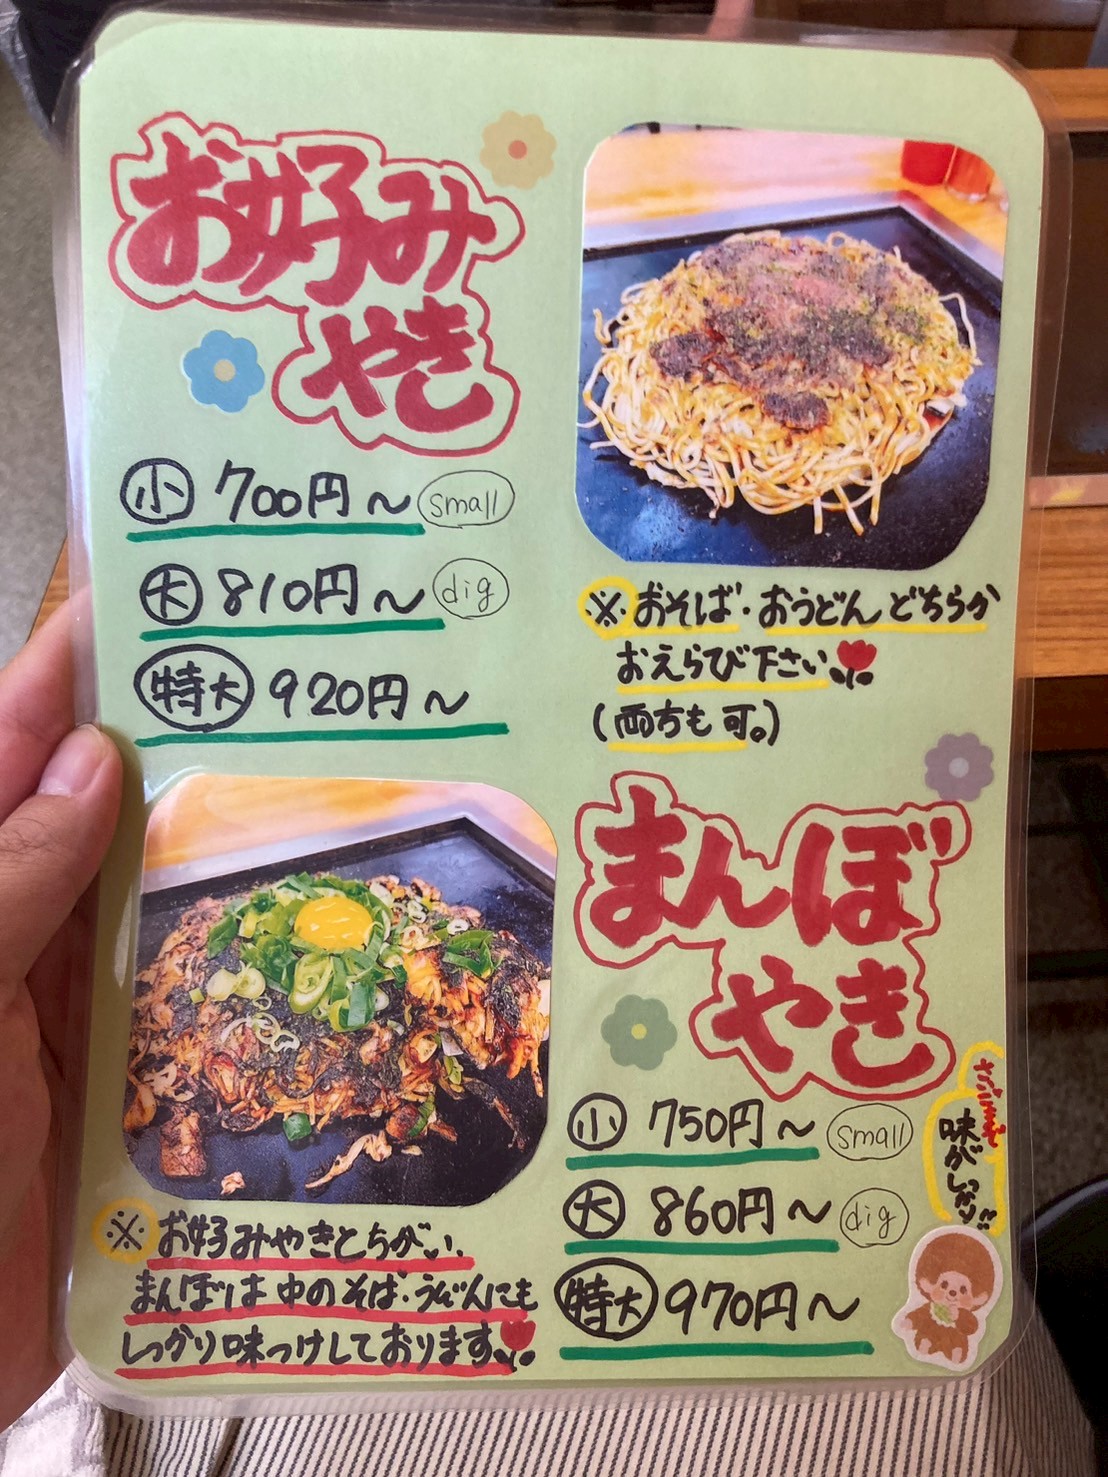 お好み
やき
小 700円～ small
大 810円～ dig
特大 920円～
※おそば・おうどんどちらか
おえらび下さい
(両方も可。)
まんぼ
やき
小 750円～ small
大 860円～ dig
特大 970円～
味がしっかり!!
※お好みやきとちがい、
まんぼは中のそば・うどんにも
しっかり味つけしております